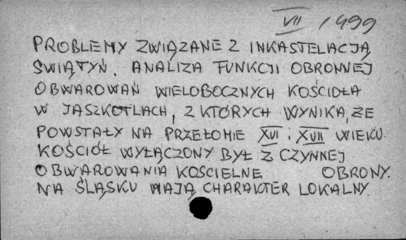 VII / 1499
PROBLEMY ZWIĄZANE Z INKASTELACJĄ
ŚWIĄTYŃ. ANALIZA FUNKCJI OBRONNEJ
OBWAROWAŃ WIELOBOCZNYCH KOŚCIOŁA
W JASZKOTLACH, Z KTÓRYCH WYNIKA, ŻE
POWSTAŁY NA PRZEŁOMIE XVI i XVII WIEKU
KOŚCIÓŁ WYŁĄCZONY BYŁ Z CZYNNEJ
OBWAROWANIA KOŚCIELNE OBRONY.
NA ŚLĄSKU MAJĄ CHARAKTER LOKALNY